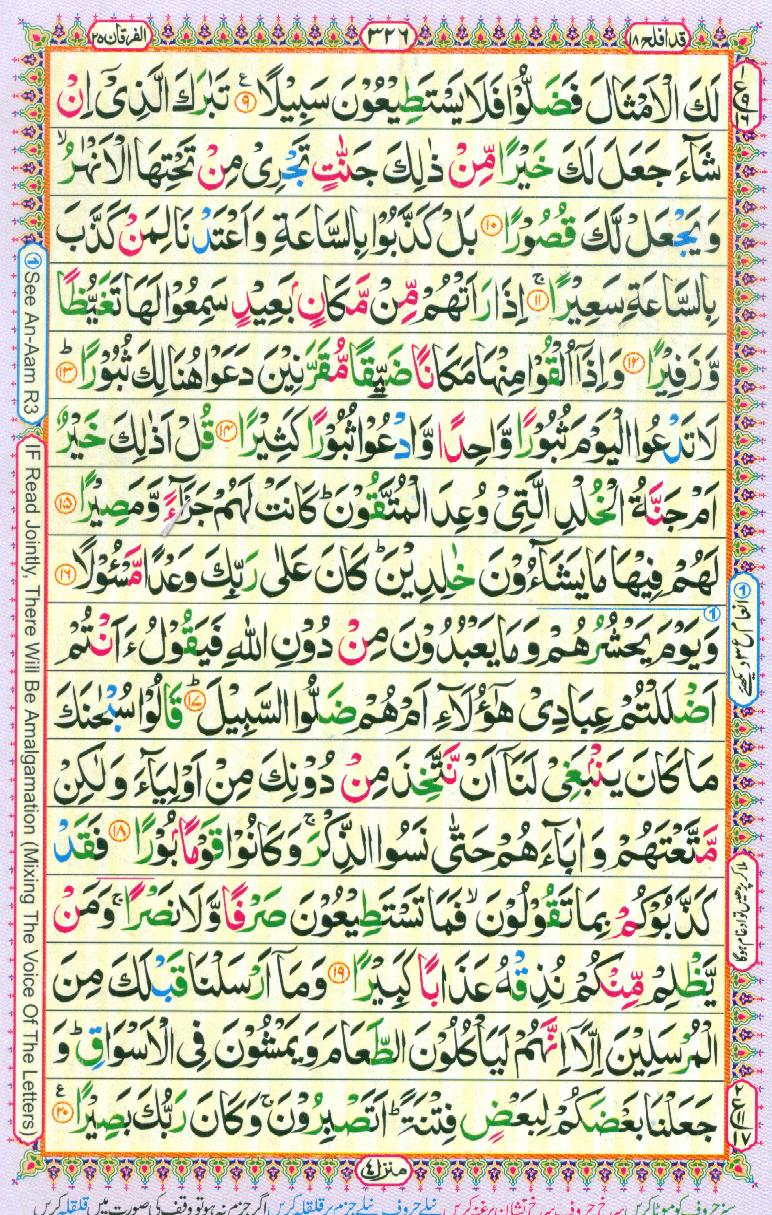 قد افلح ۱۸
۳۲۶
الفرقان ۲۵
لَكَ الْاَمْثَالَ فَضَلُّوْا فَلَا يَسْتَطِيْعُوْنَ سَبِيْلًا ۹ تَبٰرَكَ الَّذِيْٓ اِنْ
شَآءَ جَعَلَ لَكَ خَيْرًا مِّنْ ذٰلِكَ جَنّٰتٍ تَجْرِيْ مِنْ تَحْتِهَا الْاَنْهٰرُ
وَيَجْعَلْ لَّكَ قُصُوْرًا ۱۰ بَلْ كَذَّبُوْا بِالسَّاعَةِ وَاَعْتَدْنَا لِمَنْ كَذَّبَ
بِالسَّاعَةِ سَعِيْرًا ۱۱ اِذَا رَاَتْهُمْ مِّنْ مَّكَانٍۢ بَعِيْدٍ سَمِعُوْا لَهَا تَغَيُّظًا
وَّزَفِيْرًا ۱۲ وَاِذَآ اُلْقُوْا مِنْهَا مَكَانًا ضَيِّقًا مُّقَرَّنِيْنَ دَعَوْا هُنَالِكَ ثُبُوْرًا ۱۳
لَا تَدْعُوا الْيَوْمَ ثُبُوْرًا وَّاحِدًا وَّادْعُوْا ثُبُوْرًا كَثِيْرًا ۱۴ قُلْ اَذٰلِكَ خَيْرٌ
اَمْ جَنَّةُ الْخُلْدِ الَّتِيْ وُعِدَ الْمُتَّقُوْنَ ؕ كَانَتْ لَهُمْ جَزَآءً وَّمَصِيْرًا ۱۵
لَهُمْ فِيْهَا مَا يَشَآءُوْنَ خٰلِدِيْنَ ؕ كَانَ عَلٰى رَبِّكَ وَعْدًا مَّسْـُٔوْلًا ۱۶
وَيَوْمَ يَحْشُرُهُمْ وَمَا يَعْبُدُوْنَ مِنْ دُوْنِ اللّٰهِ فَيَقُوْلُ ءَاَنْتُمْ
اَضْلَلْتُمْ عِبَادِيْ هٰٓؤُلَآءِ اَمْ هُمْ ضَلُّوا السَّبِيْلَ ۱۷ قَالُوْا سُبْحٰنَكَ
مَا كَانَ يَنْۢبَغِيْ لَنَآ اَنْ نَّتَّخِذَ مِنْ دُوْنِكَ مِنْ اَوْلِيَآءَ وَلٰكِنْ
مَّتَّعْتَهُمْ وَاٰبَآءَهُمْ حَتّٰى نَسُوا الذِّكْرَ ۚ وَكَانُوْا قَوْمًۢا بُوْرًا ۱۸ فَقَدْ
كَذَّبُوْكُمْ بِمَا تَقُوْلُوْنَ ۙ فَمَا تَسْتَطِيْعُوْنَ صَرْفًا وَّلَا نَصْرًا ۚ وَمَنْ
يَّظْلِمْ مِّنْكُمْ نُذِقْهُ عَذَابًا كَبِيْرًا ۱۹ وَمَآ اَرْسَلْنَا قَبْلَكَ مِنَ
الْمُرْسَلِيْنَ اِلَّآ اِنَّهُمْ لَيَاْكُلُوْنَ الطَّعَامَ وَيَمْشُوْنَ فِي الْاَسْوَاقِ ؕ وَ
جَعَلْنَا بَعْضَكُمْ لِبَعْضٍ فِتْنَةً ؕ اَتَصْبِرُوْنَ ۚ وَكَانَ رَبُّكَ بَصِيْرًا ۲۰
منزل ۴
سبز حروف کو موٹا کریں سرخ حروف سرخ نشان پر غنہ کریں نیلے حروف نیلے جزم پر قلقلہ کریں اگر جزم نہ ہو تو وقف کی صورت میں قلقلہ کریں
① See An-Aam R3
IF Read Jointly, There Will Be Amalgamation (Mixing The Voice Of The Letters)